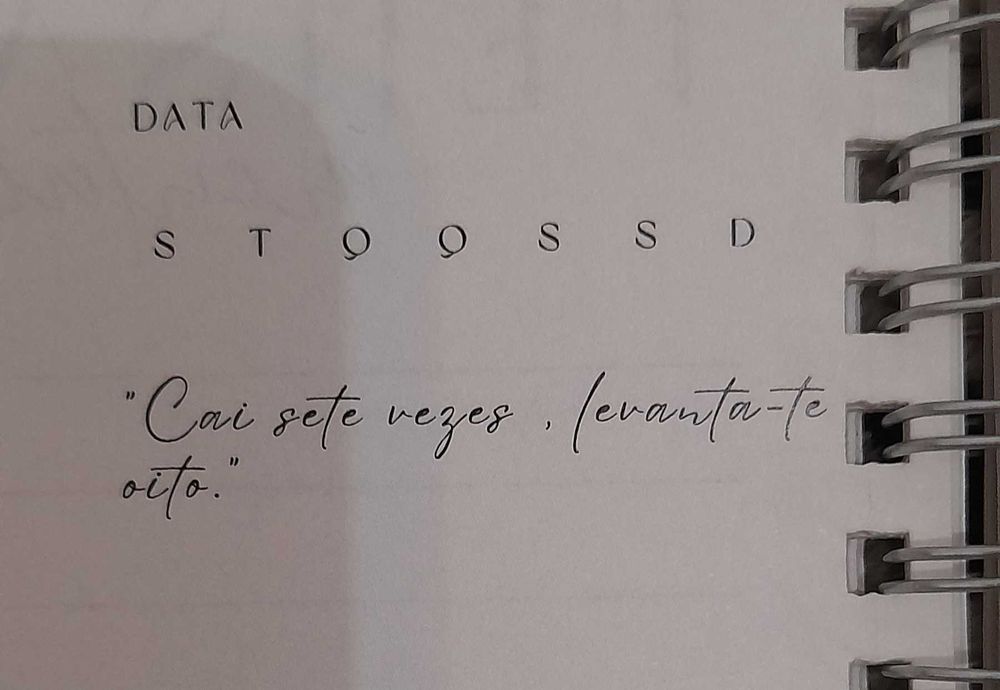 DATA
S T Q Q S S D
"Cai sete vezes , levanta-te
oito."